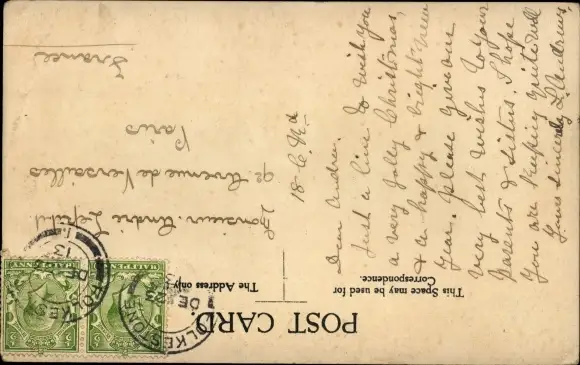 POST CARD
This Space may be used for
Correspondence.
The Address only
Dear André.
Just a line to wish you
a very Jolly Christmas,
& a happy & bright New
Year. Please give our
very best wishes to your
Parents & Sisters. I hope
you are keeping quite well
Yours sincerely L Andrews.
Monsieur André
92 Avenue de Versailles
Paris
France
FOLKESTONE